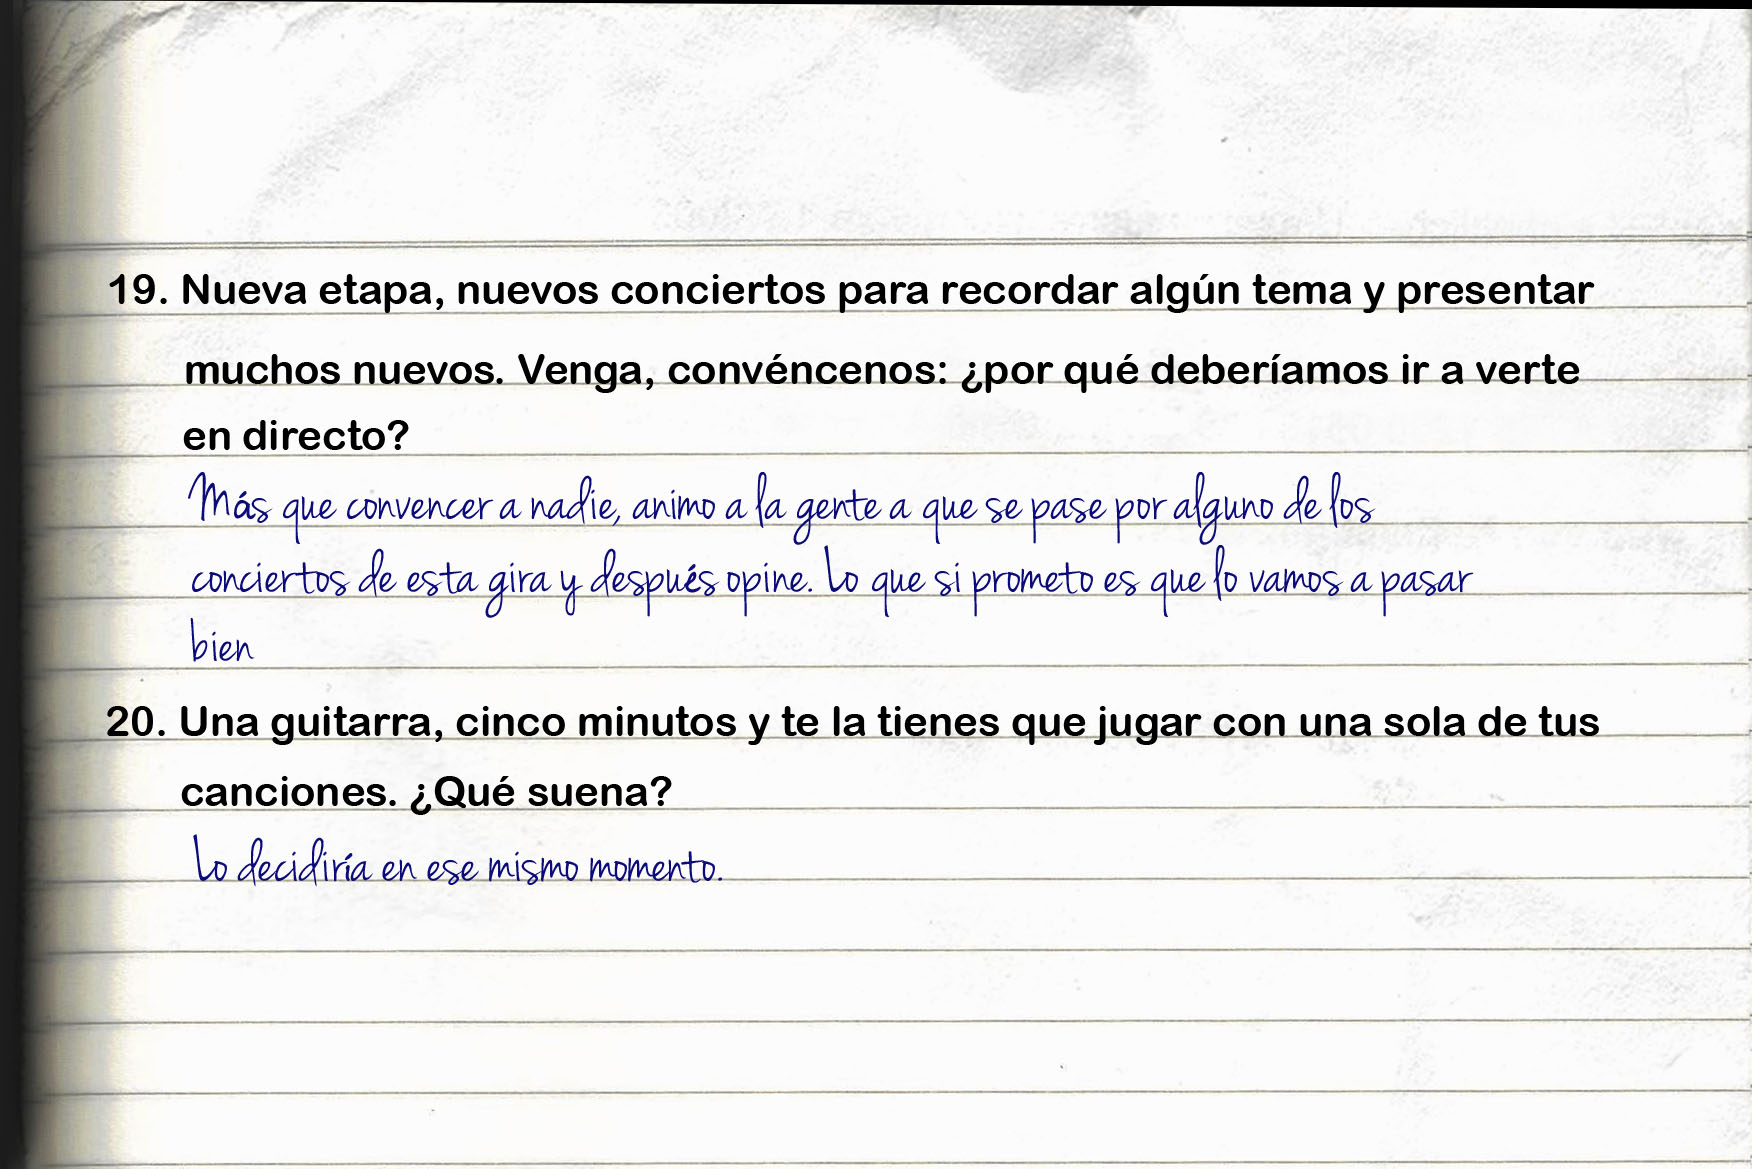 19. Nueva etapa, nuevos conciertos para recordar algún tema y presentar
muchos nuevos. Venga, convéncenos: ¿por qué deberíamos ir a verte
en directo?
Más que convencer a nadie, animo a la gente a que se pase por alguno de los
conciertos de esta gira y después opine. Lo que si prometo es que lo vamos a pasar
bien
20. Una guitarra, cinco minutos y te la tienes que jugar con una sola de tus
canciones. ¿Qué suena?
Lo decidiría en ese mismo momento.